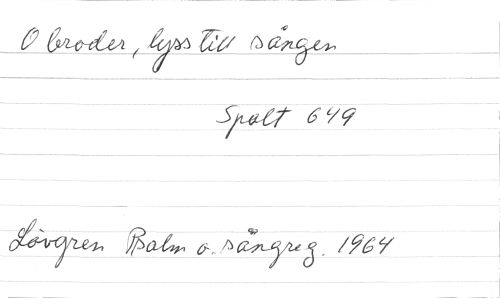 O broder, lyss till sången
Spalt 649
Lövgren Psalm o. sångreg. 1964